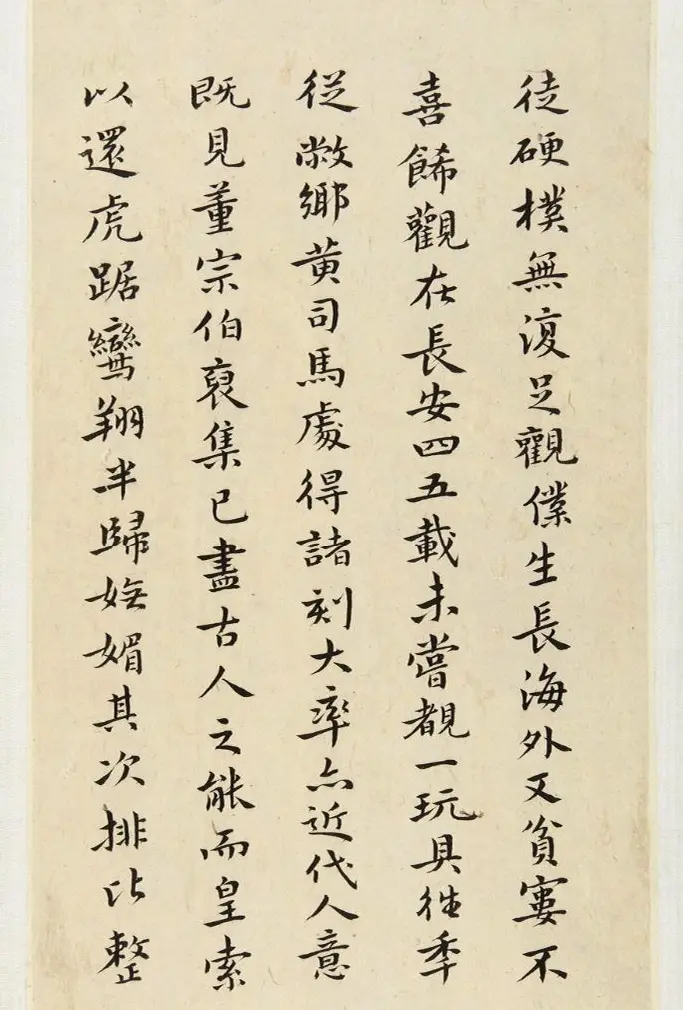 徒硬樸無復足觀僕生長海外又貧窶不
喜餙觀在長安四五載未嘗覩一玩具往秊
從敝鄉黃司馬處得諸刻大率亦近代人意
既見董宗伯裒集已盡古人之能而皇索
以還虎踞鸞翔半歸嫵媚其次排比整